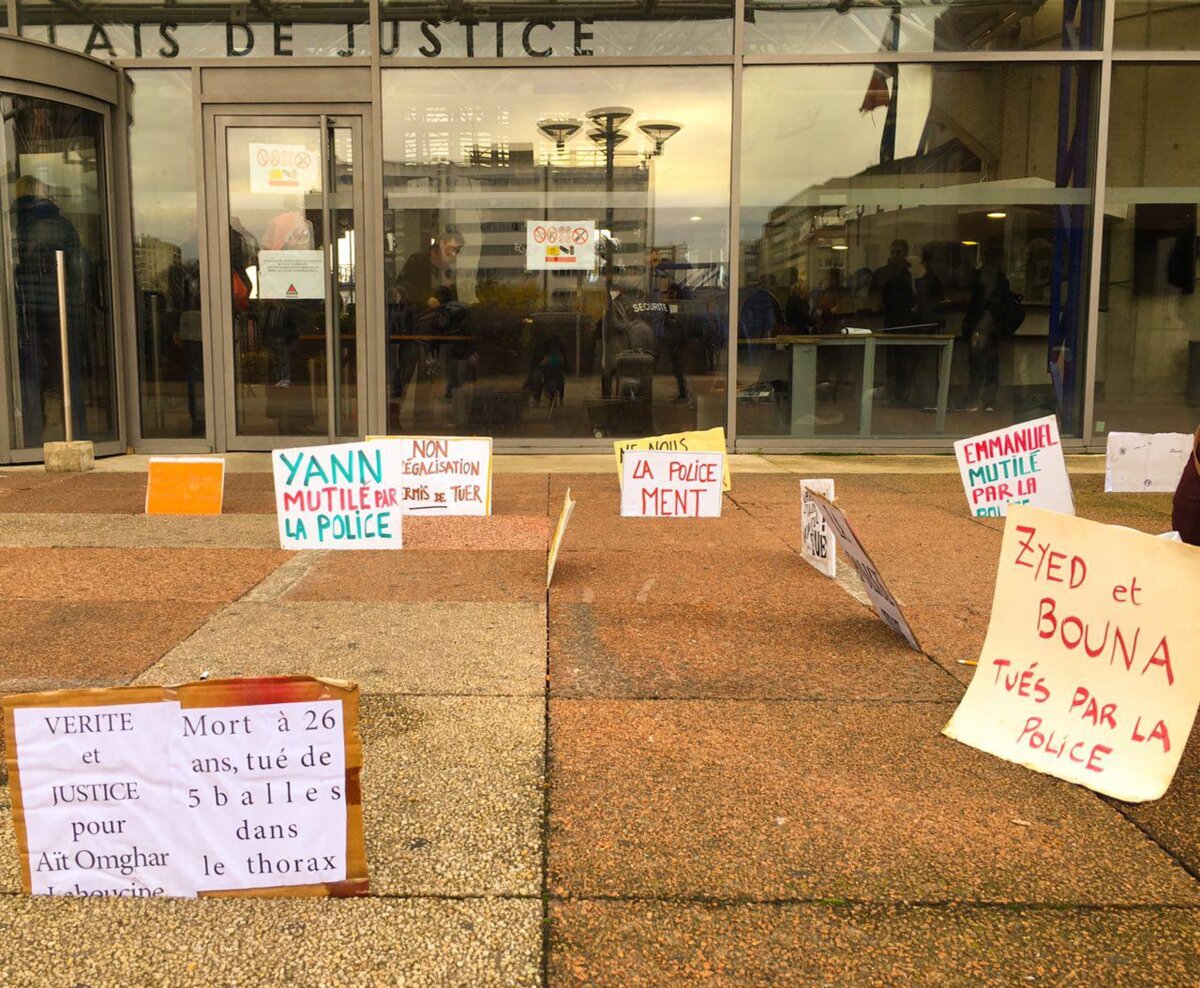 LAIS DE JUSTICE
SECURITE
YANN
MUTILÉ PAR
LA POLICE
NON
ÉGALISATION
RMIS DE TUER
NE NOUS
LA POLICE
MENT
EMMANUEL
MUTILÉ
PAR LA
POLICE
ZYED et
BOUNA
TUÉS PAR LA
POLICE
VERITE
et
JUSTICE
pour
Aït Omghar
Lahoucine
Mort à 26
ans, tué de
5 balles
dans
le thorax